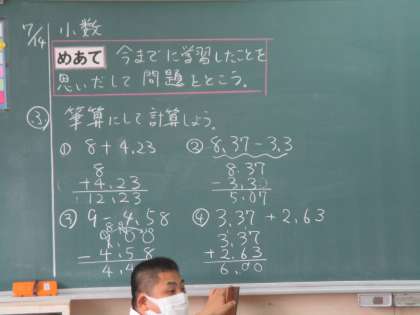 7/14 小数
めあて 今までに学習したことを
思いだして 問題をとこう。
③ 筆算にして計算しよう。
① 8+4.23
8
+4.23
12.23
② 8.37-3.3
8.37
-3.30
5.07
③ 9-4.58
9.00
-4.58
4.4
④ 3.37+2.63
3.37
+2.63
6.00